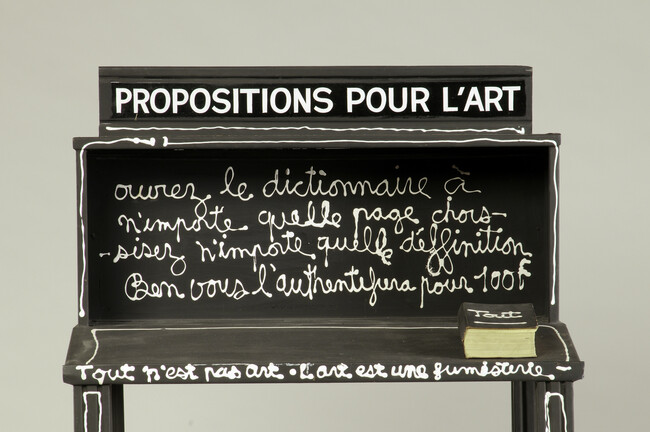 PROPOSITIONS POUR L'ART
ouvrez le dictionnaire à
n'importe quelle page chois-
-sisez n'importe quelle déffinition
Ben vous l'authentifiera pour 100F
Tout
Tout n'est pas art. L'art est une fumisterie